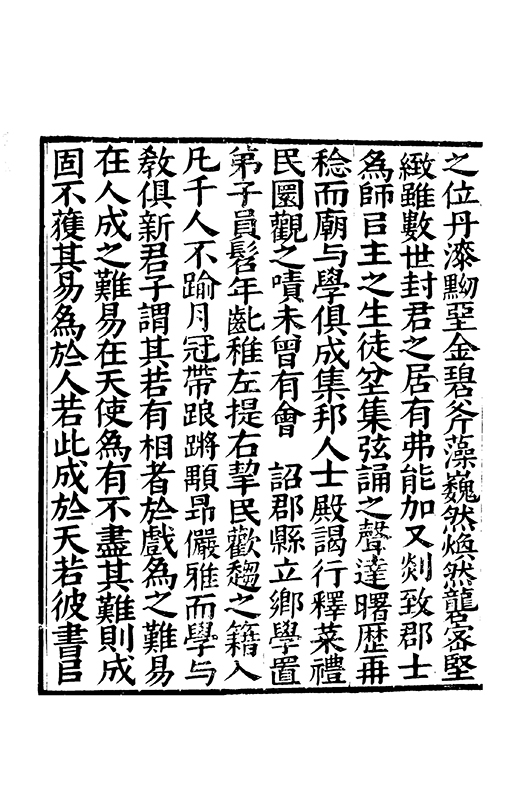 之位丹漆黝堊金碧斧藻巍然煥然礱密堅
緻雖數世封君之居有弗能加又剡致郡士
為師㠯主之生徒坌集弦誦之聲達曙歴再
稔而廟与學俱成集邦人士殿謁行釋菜禮
民圜觀之嘖未曾有會　詔郡縣立鄉學置
弟子員髫年齔稚左提右挈民歡趨之籍入
凡千人不踰月冠帶踉蹡顒昻儼雅而學与
教俱新君子謂其若有相者於戲為之難易
在人成之難易在天使為有不盡其難則成
固不獲其易為於人若此成於天若彼書㠯